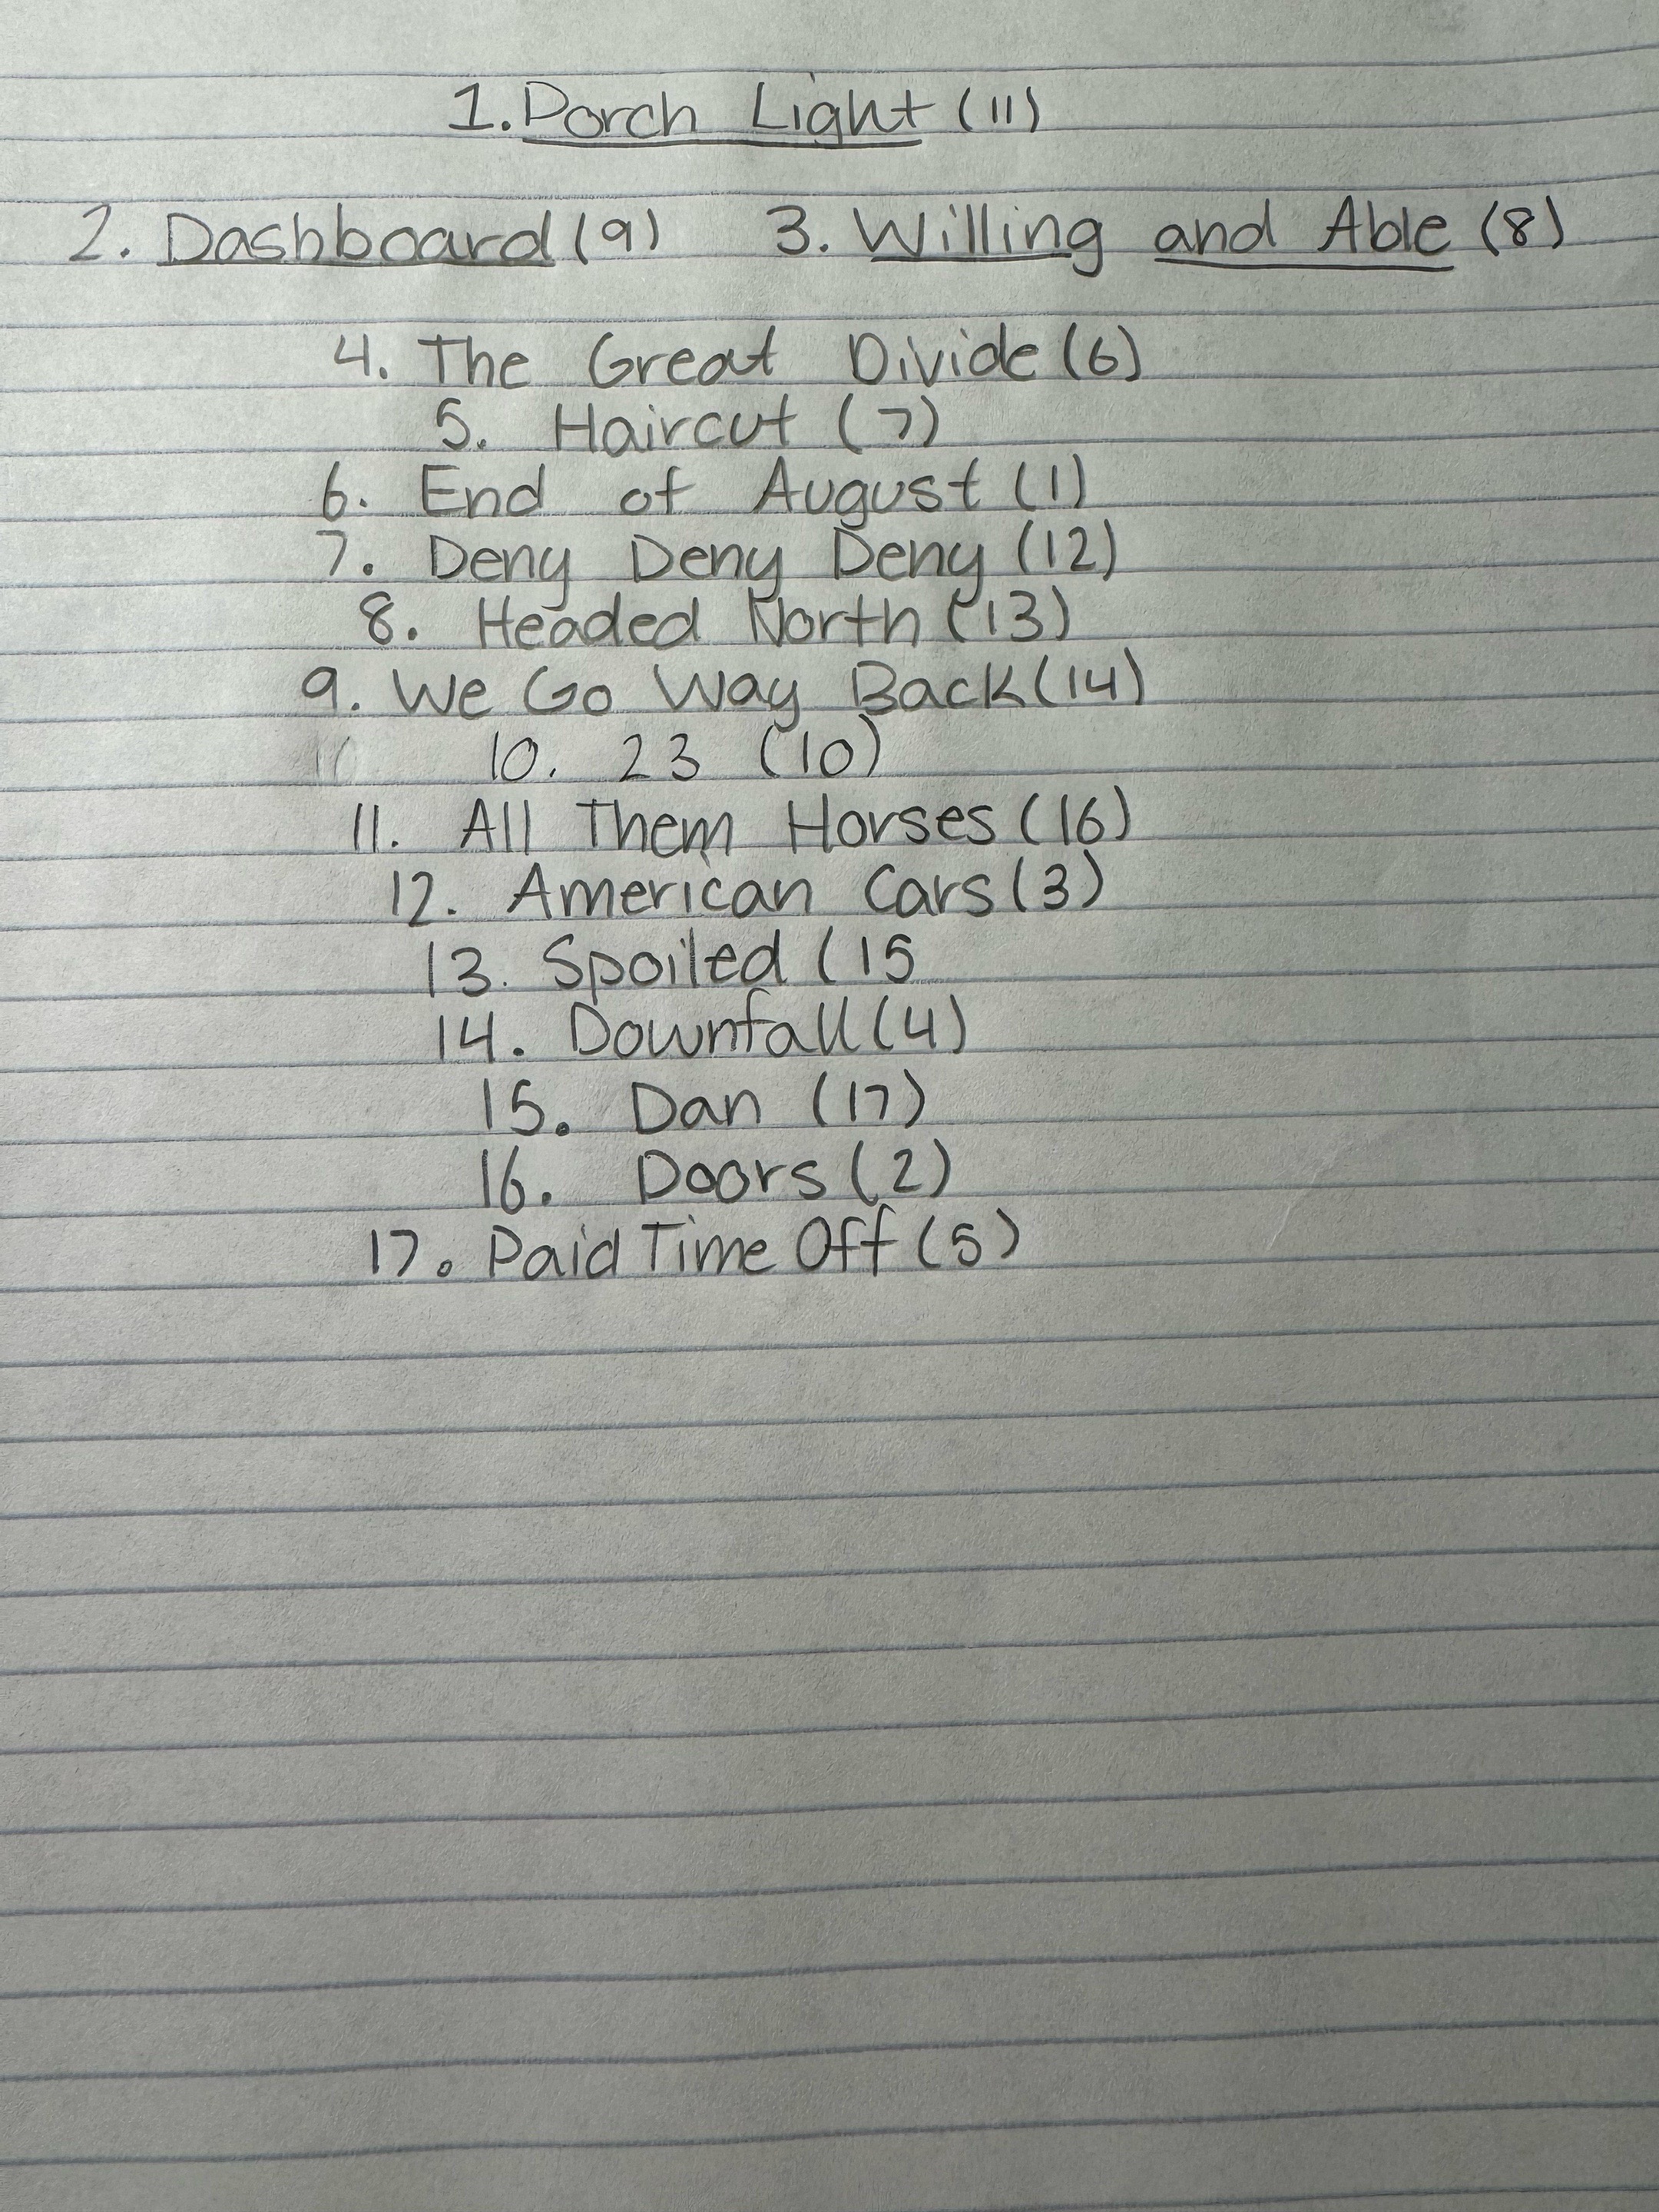 1. Porch Light (11)
2. Dashboard (9) 3. Willing and Able (8)
4. The Great Divide (6)
5. Haircut (7)
6. End of August (1)
7. Deny Deny Deny (12)
8. Headed North (13)
9. We Go Way Back (14)
10. 23 (10)
11. All Them Horses (16)
12. American Cars (3)
13. Spoiled (15
14. Downfall (4)
15. Dan (17)
16. Doors (2)
17. Paid Time Off (5)